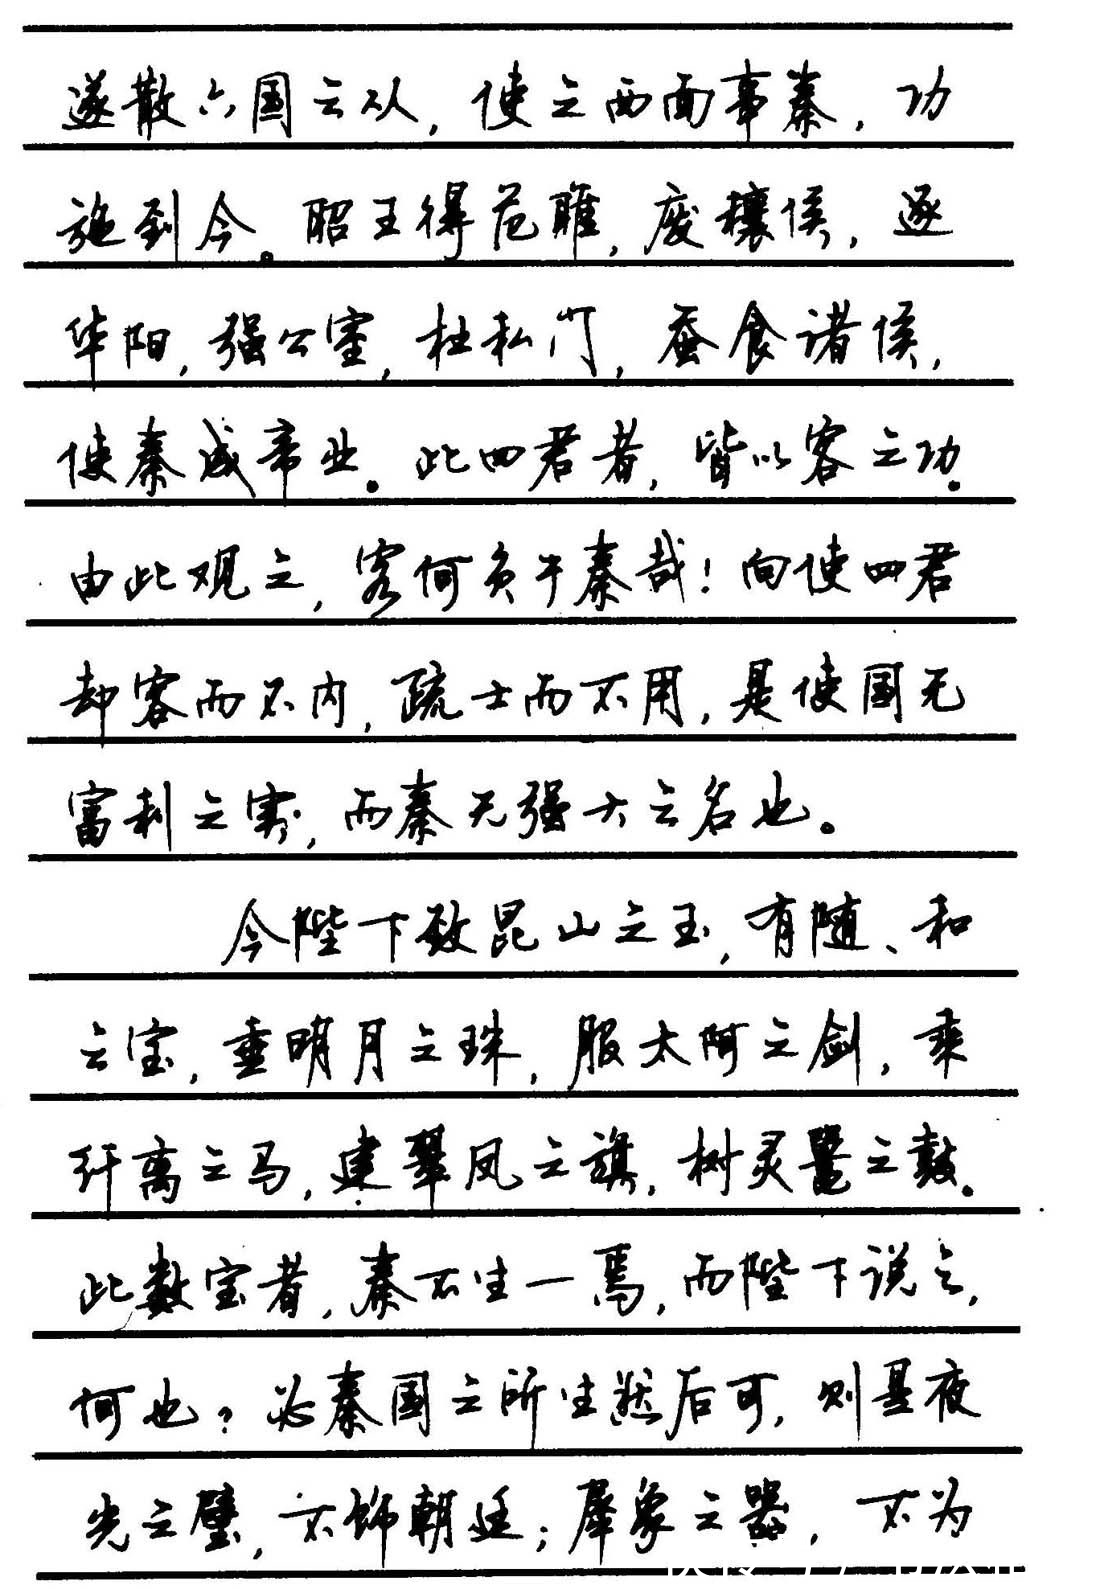 遂散六国之从，使之西面事秦，功
施到今。昭王得范雎，废穰侯，逐
华阳，强公室，杜私门，蚕食诸侯，
使秦成帝业。此四君者，皆以客之功。
由此观之，客何负于秦哉！向使四君
却客而不内，疏士而不用，是使国无
富利之实，而秦无强大之名也。
今陛下致昆山之玉，有随、和
之宝，垂明月之珠，服太阿之剑，乘
纤离之马，建翠凤之旗，树灵鼍之鼓。
此数宝者，秦不生一焉，而陛下说之，
何也？必秦国之所生然后可，则是夜
光之璧，不饰朝廷；犀象之器，不为